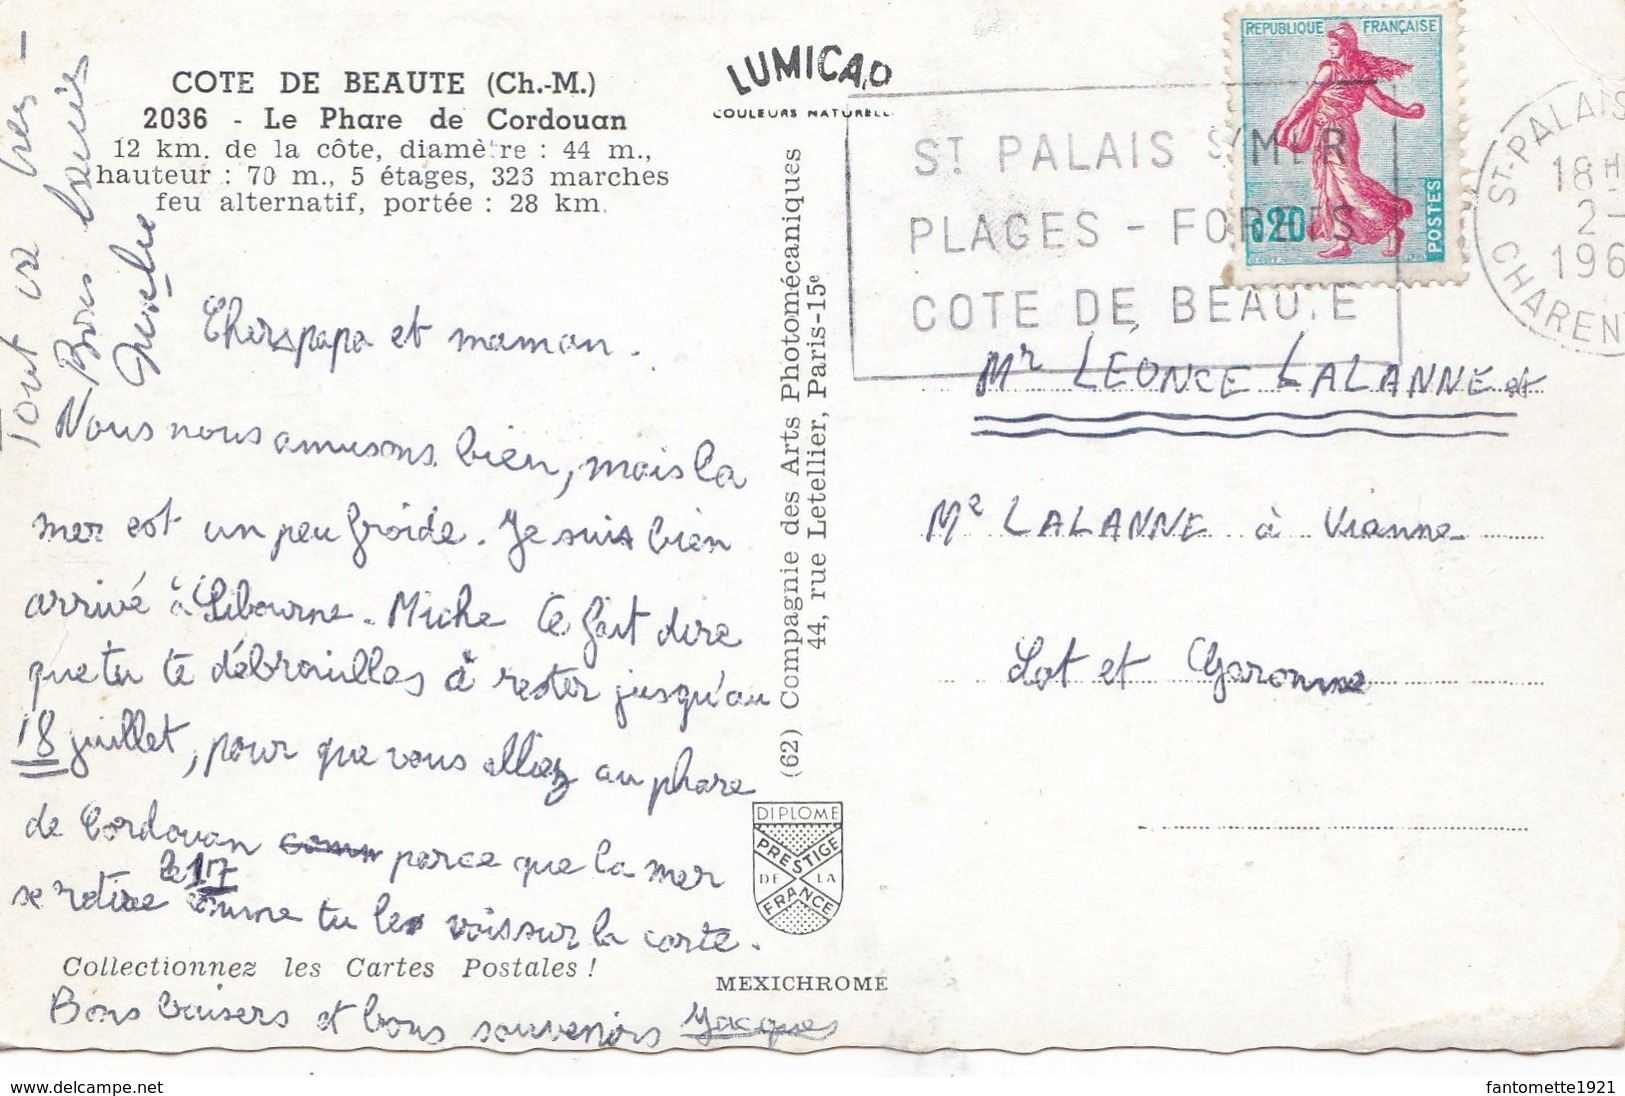 COTE DE BEAUTE (Ch.-M.)
2036 - Le Phare de Cordouan
12 km. de la côte, diamètre : 44 m.,
hauteur : 70 m., 5 étages, 326 marches
feu alternatif, portée : 28 km.
Tout va
Bons baisers
Chers papa et maman.
Nous nous amusons bien, mais la
mer est un peu froide. Je suis bien
arrivé à Libourne. Miche te fait dire
que tu te débrouilles à rester jusqu'au
18 juillet, pour que vous alliez au phare
de Cordouan parce que la mer
se retire le 17 comme tu le vois sur la carte.
Collectionnez les Cartes Postales !
Bons baisers et bons souvenirs Jacques
LUMICAP
COULEURS NATURELL
(62) Compagnie des Arts Photomécaniques
44, rue Letellier, Paris-15e
DIPLOME
PRESTIGE
DE LA
FRANCE
MEXICHROME
ST PALAIS S/MER
PLAGES - FORETS
COTE DE BEAUTE
REPUBLIQUE FRANÇAISE
0,20
POSTES
ST-PALAIS
18H
2-
196
CHARENT
Mr LÉONCE LALANNE et
Me LALANNE à Vianne
Lot et Garonne
www.delcampe.net
fantomette1921